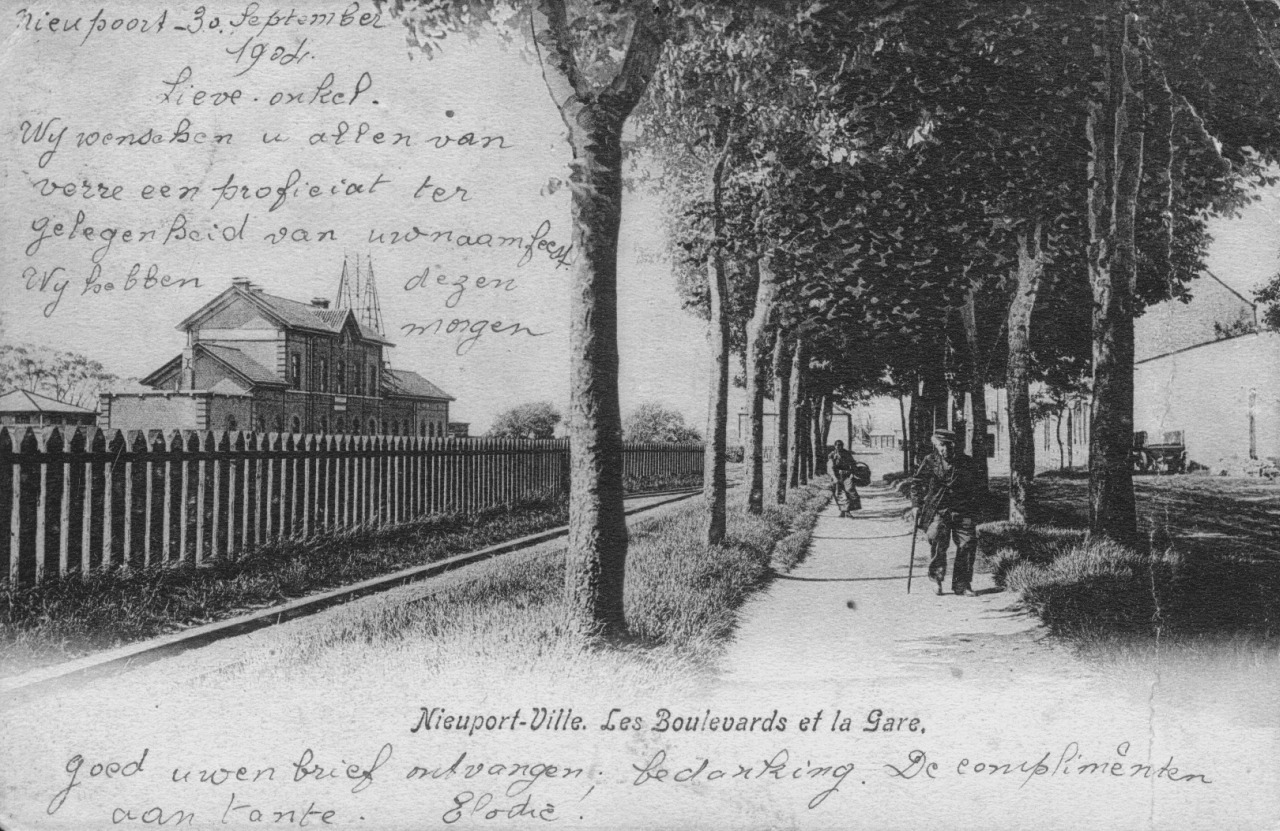 Nieupoort - 30 September
1904.
Lieve onkel.
Wy wenschen u allen van
verre een proficiat ter
gelegenheid van uw naamfeest
Wy hebben dezen
morgen
Nieuport-Ville. Les Boulevards et la Gare.
goed uwen brief ontvangen; bedanking. De complimênten
aan tante. Elodie!